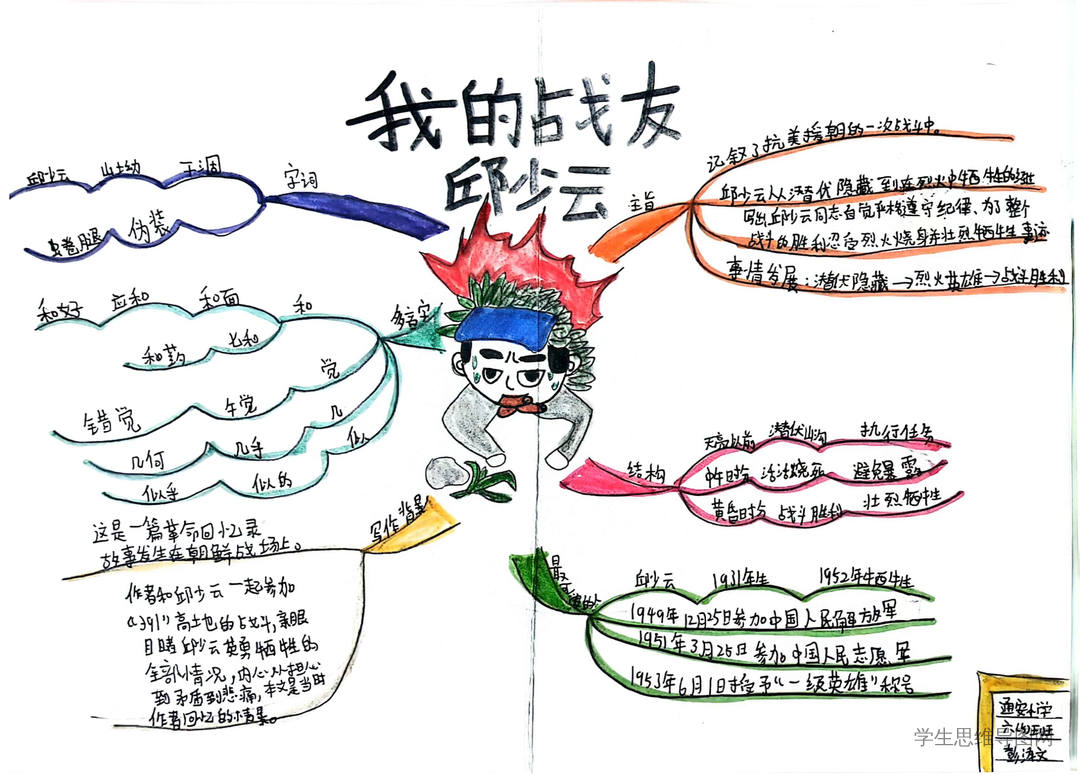 我的战友
邱少云
字词
邱少云 山坳 干涸
伪装
多音字
和
和好 应和 和面
和药 七和
觉
错觉 午觉
几
几何 几乎
似
似乎 似的
写作背景
这是一篇革命回忆录
故事发生在朝鲜战场上。
作者和邱少云一起参加
“391”高地的战斗,亲眼
目睹邱少云英勇牺牲的
全部情况,内心从担心
到矛盾到悲痛,本文是当时
作者回忆的情景。
主旨
记叙了抗美援朝的一次战斗中。
邱少云从潜伏隐藏到在烈火中牺牲的
写出邱少云同志自觉严格遵守纪律、为了整个
战斗的胜利忍受烈火烧身并壮烈牺牲事迹
事情发展:潜伏隐藏→烈火英雄→战斗胜利
结构
天亮以前 潜伏山沟 执行任务
中午时分 活活烧死 避免暴露
黄昏时分 战斗胜利 壮烈牺牲
邱少云 1931年生 1952年牺牲
1949年12月25日参加中国人民解放军
1951年3月25日参加中国人民志愿军
1953年6月1日授予“一级英雄”称号
通安小学
学生思维导图网